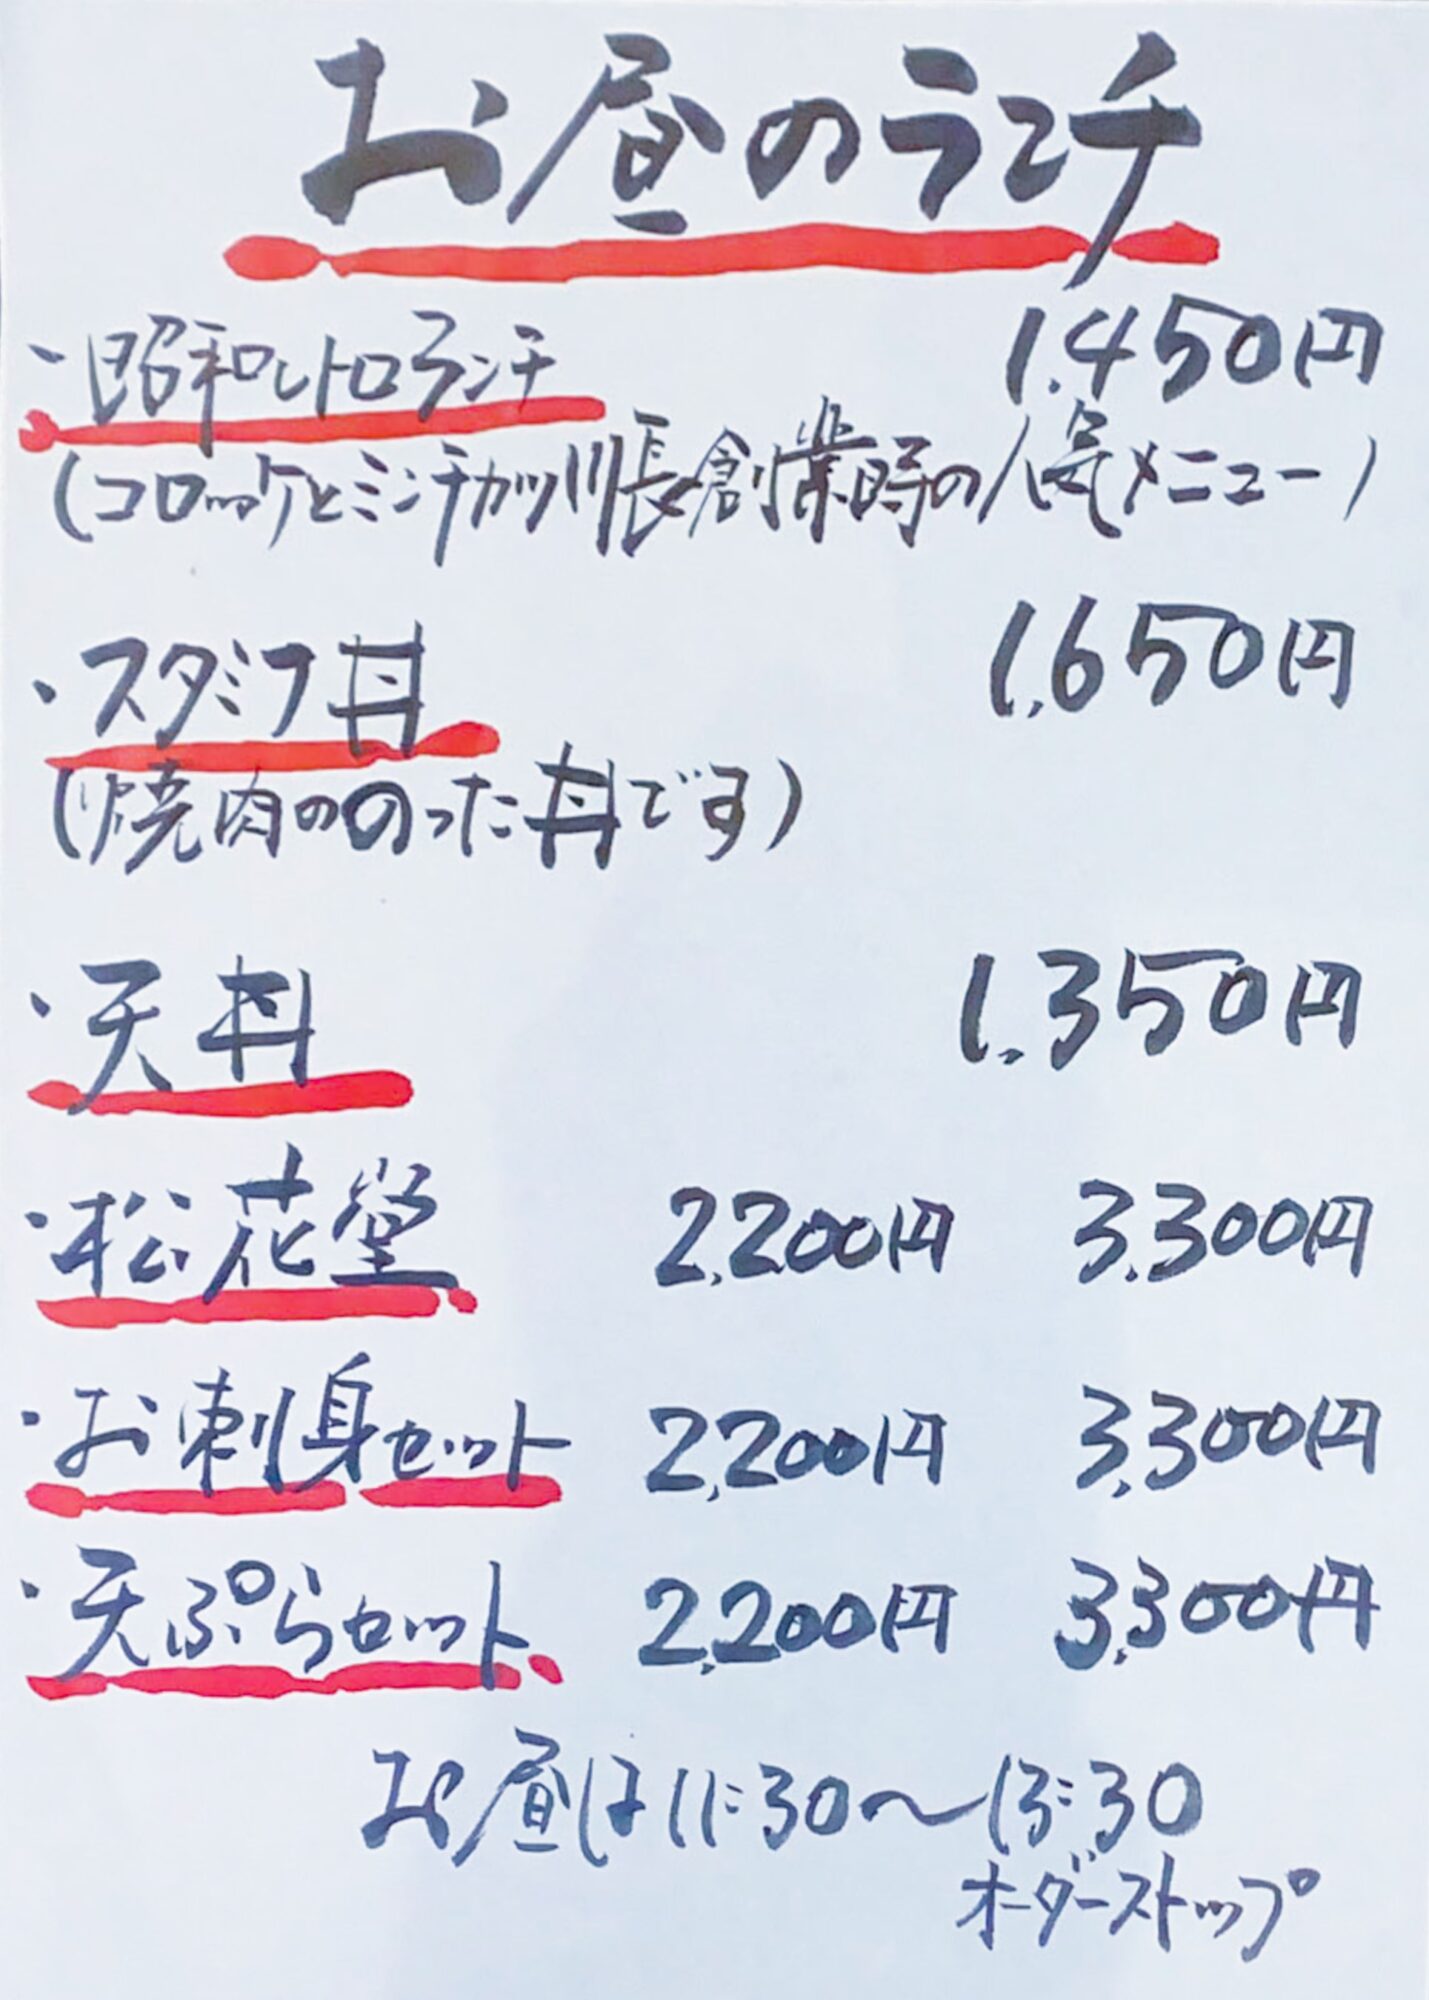 お昼のランチ
・昭和レトロランチ 1,450円
(コロッケとミンチカツ川長創業時の人気メニュー)
・スタミナ丼 1,650円
(焼肉ののった丼です)
・天丼 1,350円
・松花堂 2,200円 3,300円
・お刺身セット 2,200円 3,300円
・天ぷらセット 2,200円 3,300円
お昼は11:30〜13:30
オーダーストップ